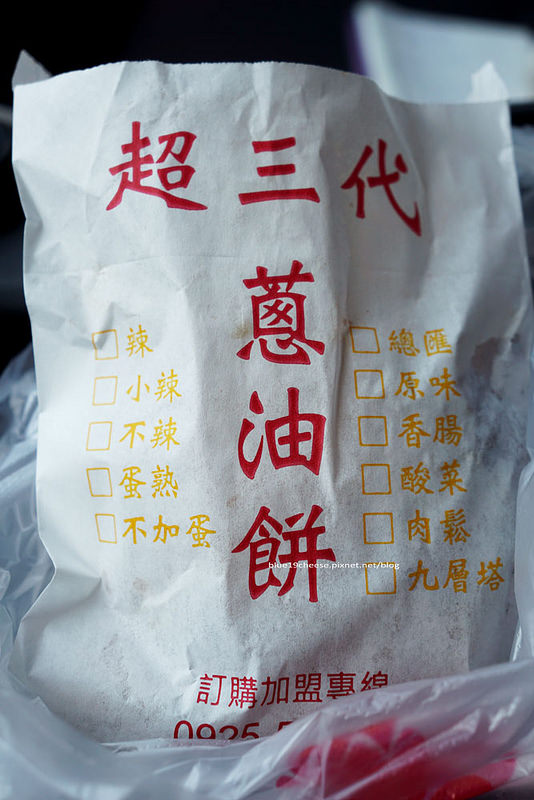 超三代
蔥油餅
□辣
□小辣
□不辣
□蛋熟
□不加蛋
□總匯
□原味
□香腸
□酸菜
□肉鬆
□九層塔
訂購加盟專線
0925
blue19cheese.pixnet.net/blog